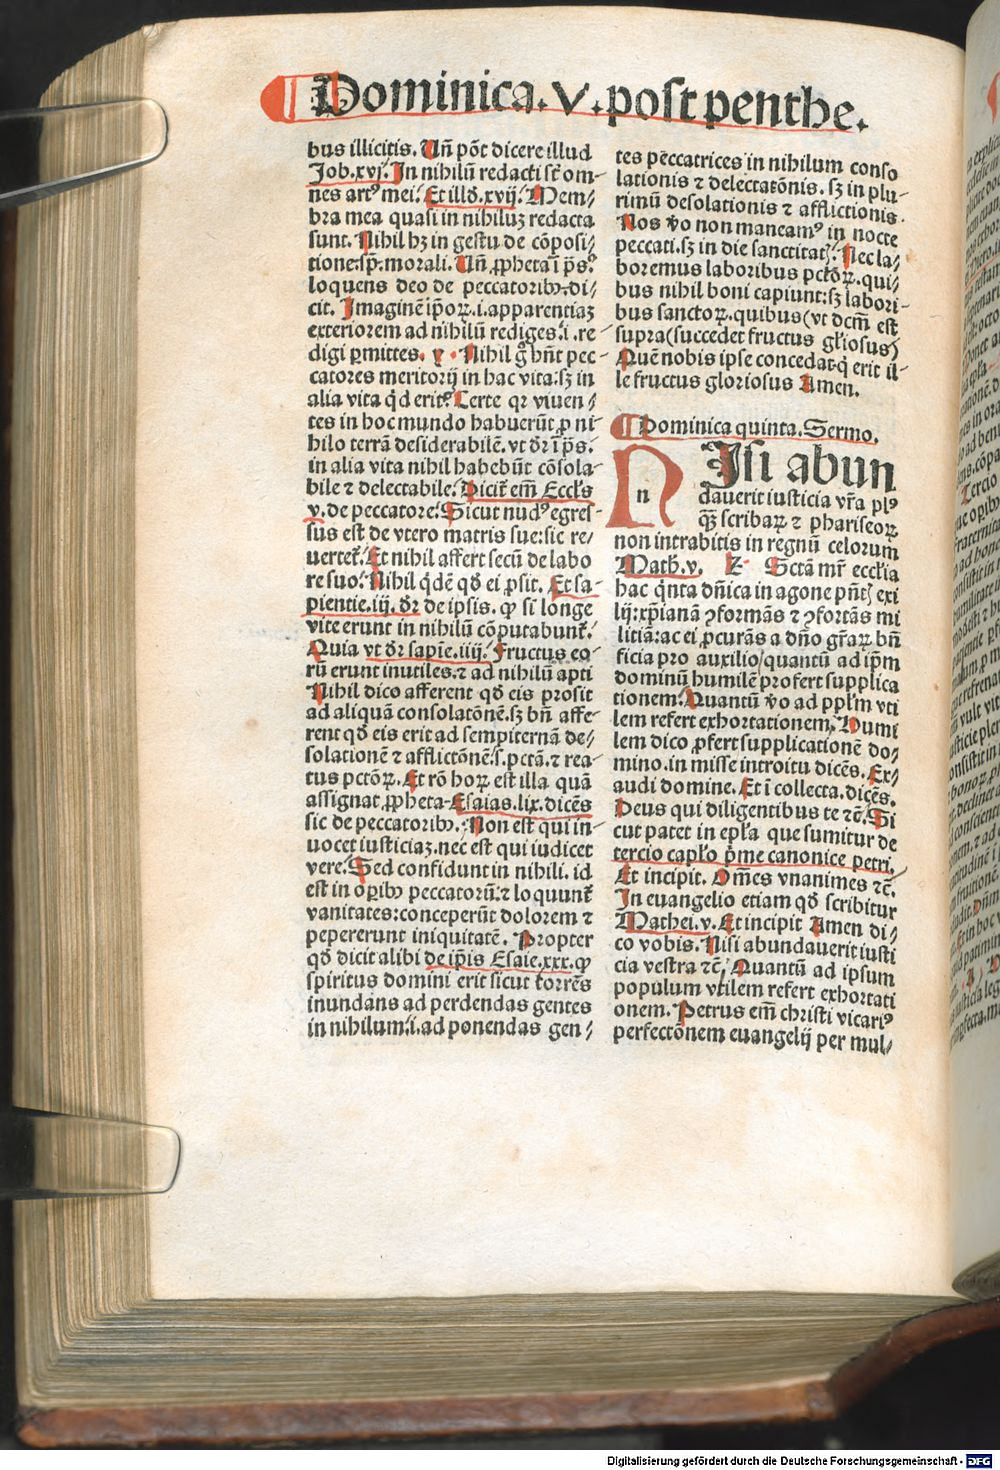 Dominica. V. post penthe.
bus illicitis. Uñ põt dicere illud
Job. xvj. In nihilũ redacti st̃ om-
nes artꝰ mei. Et illđ. xvij. Mem/
bra mea quasi in nihiluz redacta
sunt. Nihil hz in gestu de cõposi/
tione: sp̃. morali. Uñ ꝓpheta ĩ p̃s.
loquens deo de peccatoribꝰ. di-
cit. Imaginẽ ip̃oꝝ. i. apparentiaz
exteriorem ad nihilũ rediges. i. re
digi ꝑmittes. Nihil g̃ hñt pec-
catores meritorij in hac vita: sz in
alia vita q̃d erit. Certe qꝛ viuen/
tes in hoc mundo habuerũt ꝓ ni-
hilo terrã desiderabilẽ. vt dꝛ̃ ĩ p̃s.
in alia vita nihil habebũt cõsola-
bile ⁊ delectabile. Dicit̃ em̃ Eccl̃s
v. de peccatore. Sicut nudꝰ egres-
sus est de vtero matris sue: sic re/
uertet̃. Et nihil affert secũ de labo
re suo. Nihil q̃dẽ qđ ei ꝓsit. Et sa-
pientie. iij. dꝛ̃ de ipsis. ꝙ si longe
vite erunt in nihilũ cõputabunt̃.
Quia vt dꝛ̃ sapiẽ. iiij. Fructus eo-
rũ erunt inutiles. ⁊ ad nihilũ apti
Nihil dico afferent qđ eis prosit
ad aliquã consolatõnẽ. sz bñ affe-
rent qđ eis erit ad sempiternã de/
solationẽ ⁊ afflictõnẽ. s. pctã. ⁊ rea-
tus pctõꝝ. Et rõ hoꝝ est illa quã
assignat ꝓpheta. Esaias. lix. dicẽs
sic de peccatoribꝰ. Non est qui in-
uocet iusticiaz. nec est qui iudicet
vere. Sed confidunt in nihili. id
est in oꝑibꝰ peccatorũ: ⁊ loquunt̃
vanitates: conceperũt dolorem ⁊
pepererunt iniquitatẽ. Propter
qđ dicit alibi de ip̃is Esaie. xxx. ꝙ
spiritus domini erit sicut torrẽs
inundans ad perdendas gentes
in nihilum. i. ad ponendas gen/
tes peccatrices in nihilum conso
lationis ⁊ delectatõnis. sz in plu-
rimũ desolationis ⁊ afflictionis.
Nos ṽo non maneamꝰ in nocte
peccati. sz in die sanctitat̃. Nec la-
boremus laboribus pctõꝝ. qui/
bus nihil boni capiunt: sz labori-
bus sanctoꝝ. quibus (vt dcm̃ est
supra (succedet fructus gl̃iosus)
Quẽ nobis ipse concedat. q̃ erit il-
le fructus gloriosus Amen.
Dominica quinta. Sermo.
n
NIsi abun
dauerit iusticia vr̃a plꝰ
q̃ꝫ scribaꝝ ⁊ phariseoꝝ
non intrabitis in regnũ celorum
Math. v. Sctã mr̃ eccl̃ia
hac q̃nta dñica in agone pñt̃ exi
lij: xp̃ianã ꝯformãs ⁊ ꝯfortãs mi
litiã: ac ei ꝓcurãs a dño gr̃aꝝ bñ
ficia pro auxilio/ quantũ ad ip̃m
dominũ humilẽ profert supplica
tionem. Quantũ ṽo ad pp̃lm vti
lem refert exhortationem. Humi
lem dico ꝓfert supplicationẽ do/
mino. in misse introitu dicẽs. Ex/
audi domine. Et ĩ collecta. dicẽs.
Deus qui diligentibus te ⁊c̃. Si
cut patet in epl̃a que sumitur de
tercio capl̃o p̃me canonice petri.
Et incipit. Om̃es vnanimes ⁊c̃.
In euangelio etiam qđ scribitur
Mathei. v. Et incipit Amen di/
co vobis. Nisi abundauerit iusti
cia vestra ⁊c̃. Quantũ ad ipsum
populum vtilem refert exhortati
onem. Petrus em̃ christi vicariꝰ
perfectõnem euangelij per mul/
Digitalisierung gefördert durch die Deutsche Forschungsgemeinschaft - DFG